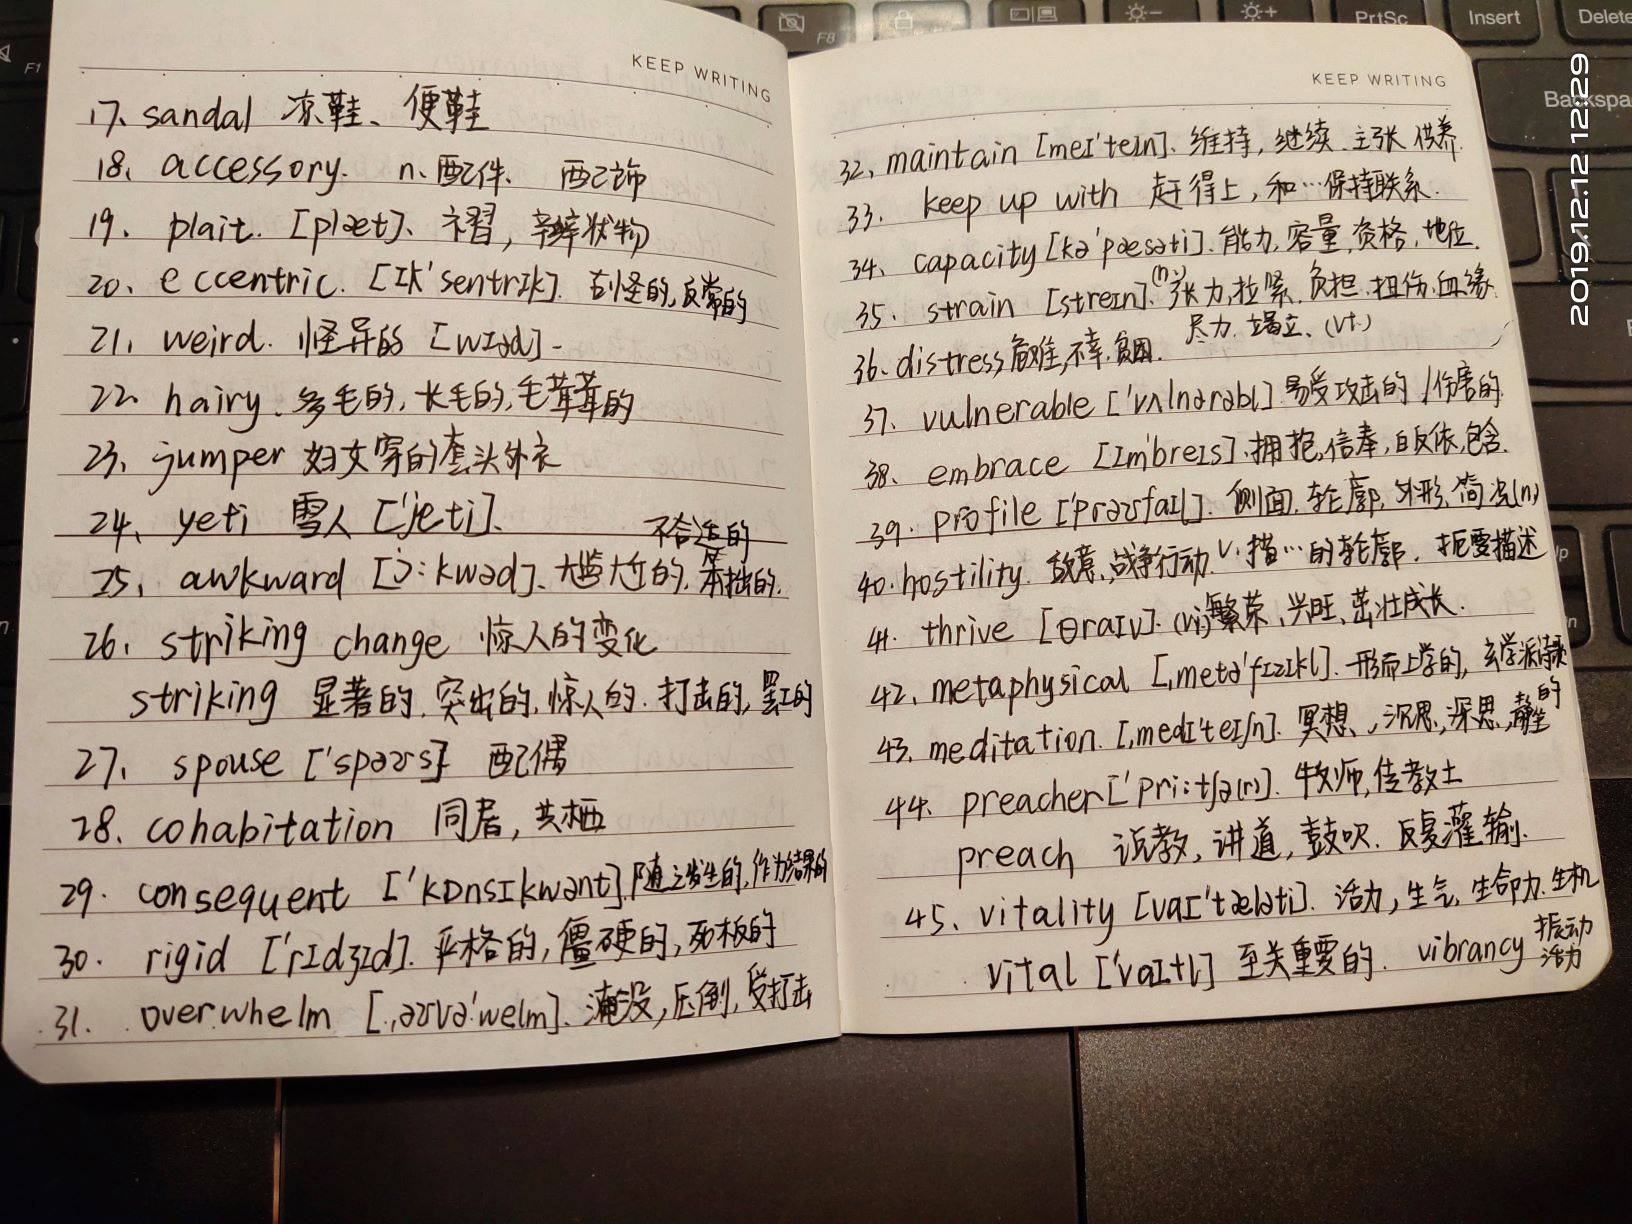 KEEP WRITING
17、sandal 凉鞋、便鞋
18、accessory. n、配件、配饰
19、plait. [plæt]、褶，辫状物
20、eccentric. [ɪk'sentrɪk]. 古怪的,反常的
21、weird. 怪异的 [wɪəd].
22、hairy、多毛的,长毛的,毛茸茸的
23、jumper 妇女穿的套头外衣
24、yeti 雪人 ['jeti].
不合适的
25、awkward [ɔ:kwəd]、尴尬的,笨拙的.
26、striking change 惊人的变化
striking 显著的,突出的,惊人的.打击的,罢工的
27、spouse ['spaʊs] 配偶
28、cohabitation 同居,共栖
29. consequent ['kɒnsɪkwənt].随之发生的,作为结果的
30. rigid ['rɪdʒɪd]. 严格的,僵硬的,死板的
31. overwhelm [ˌəʊvə'welm]、淹没,压倒,受打击
KEEP WRITING
32、maintain [meɪ'teɪn]. 维持,继续.主张.供养.
33. keep up with 赶得上,和…保持联系.
34、capacity [kə'pæsəti].能力,容量,资格,地位.
35. strain [streɪn].(n)张力,拉紧.负担.扭伤.血缘
尽力. (vt.)
36、distress 危难,不幸.
37. vulnerable ['vʌlnərəbl].易受攻击的/伤害的
38、embrace [ɪm'breɪs].拥抱,信奉,皈依,包含.
39. profile ['prəʊfaɪl]. 侧面.轮廓.外形.简况(n)
40. hostility. 敌意,战争行动 v. 描…的轮廓. 扼要描述
41. thrive [θraɪv]. (vi)繁荣,兴旺、茁壮成长.
42. metaphysical [ˌmetə'fɪzɪkl]. 形而上学的,玄学派诗歌的
43. meditation. [ˌmedɪ'teɪʃn]. 冥想、,沉思,深思,静坐
44. preacher ['pri:tʃə(r)]. 牧师,传教士
preach 说教,讲道,鼓吹.反复灌输.
45、vitality [vaɪ'tæləti]. 活力,生气,生命力.生机
vital ['vaɪtl] 至关重要的. vibrancy 振动
活力
F1
F8
PrtSc
Insert
Delete
Backspa
2019.12.12 12:29